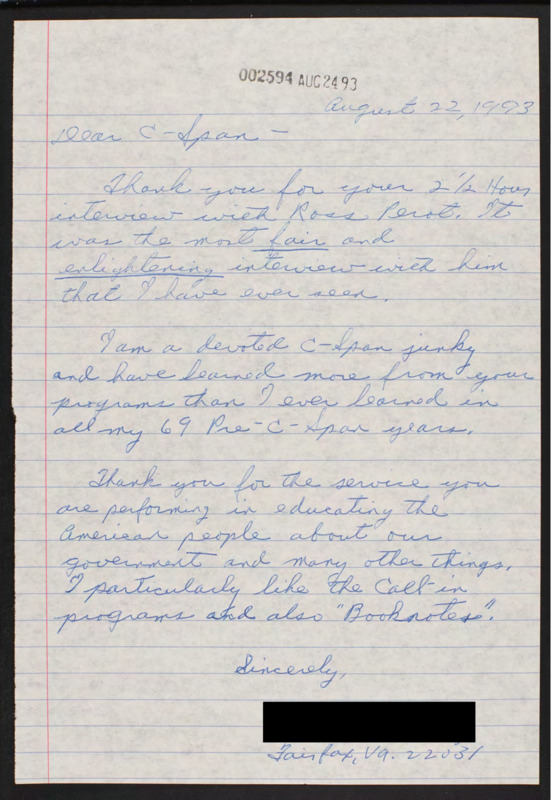 002594 AUG 24 93
August 22, 1993
Dear C-Span -
Thank you for your 2 1/2 Hour
interview with Ross Perot. It
was the most fair and
enlightening interview with him
that I have ever seen.
I am a devoted C-Span junky
and have learned more from your
programs than I ever learned in
all my 69 Pre-C-Span years.
Thank you for the service you
are performing in educating the
American people about our
government and many other things.
I particularly like the Call-in
programs and also "Booknotes".
Sincerely,
Fairfax, Va. 22031